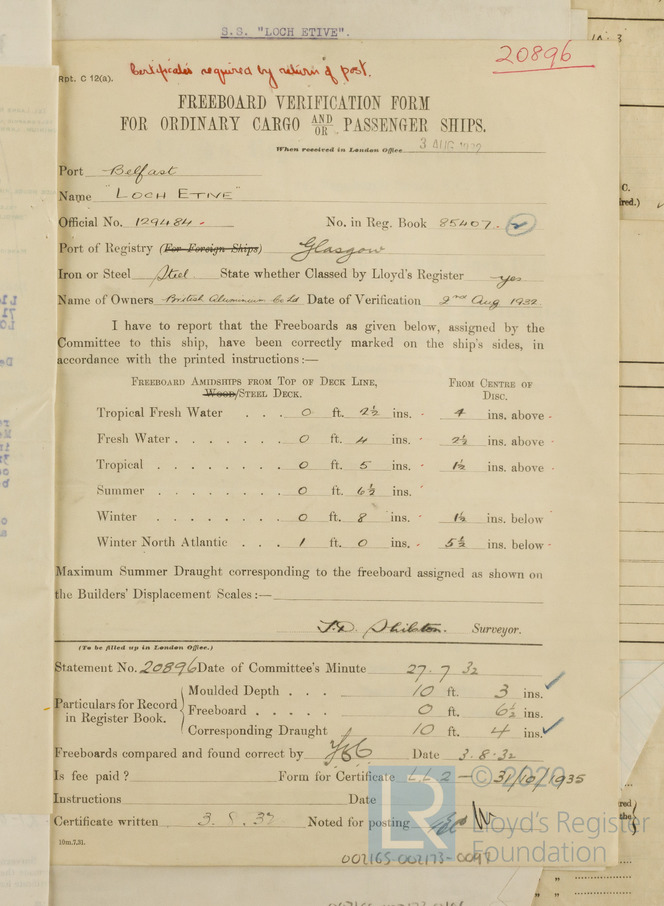 S.S. "LOCH ETIVE".
20896
Rpt. C 12(a).
Certificates required by return of post.
FREEBOARD VERIFICATION FORM
FOR ORDINARY CARGO AND/OR PASSENGER SHIPS.
When received in London Office 3 AUG 1932
Port Belfast
Name "LOCH ETIVE"
Official No. 129484. No. in Reg. Book 85407.
Port of Registry (For Foreign Ships) Glasgow
Iron or Steel Steel State whether Classed by Lloyd's Register yes
Name of Owners British Aluminium Co Ltd Date of Verification 2nd Aug 1932
I have to report that the Freeboards as given below, assigned by the
Committee to this ship, have been correctly marked on the ship's sides, in
accordance with the printed instructions:—
FREEBOARD AMIDSHIPS FROM TOP OF DECK LINE, FROM CENTRE OF
WOOD/STEEL DECK. DISC.
Tropical Fresh Water . . . 0 ft. 2½ ins. 4 ins. above
Fresh Water . . . . . . . 0 ft. 4 ins. 2½ ins. above
Tropical . . . . . . . . 0 ft. 5 ins. 1½ ins. above
Summer . . . . . . . . 0 ft. 6½ ins.
Winter . . . . . . . . 0 ft. 8 ins. 1½ ins. below
Winter North Atlantic . . . 1 ft. 0 ins. 5½ ins. below
Maximum Summer Draught corresponding to the freeboard assigned as shown on
the Builders' Displacement Scales:—
J.D. Shilston. Surveyor.
(To be filled up in London Office.)
Statement No. 20896 Date of Committee's Minute 27.7.32
Particulars for Record in Register Book.
Moulded Depth . . . 10 ft. 3 ins.
Freeboard . . . . . 0 ft. 6½ ins.
Corresponding Draught 10 ft. 4 ins.
Freeboards compared and found correct by Date 3.8.32
Is fee paid? Form for Certificate LL 2 — 31/10/1935
Instructions Date
Certificate written 3.8.32 Noted for posting
10m,7,31.
© 2020
LR
Lloyd's Register
Foundation
002165-002173-0097